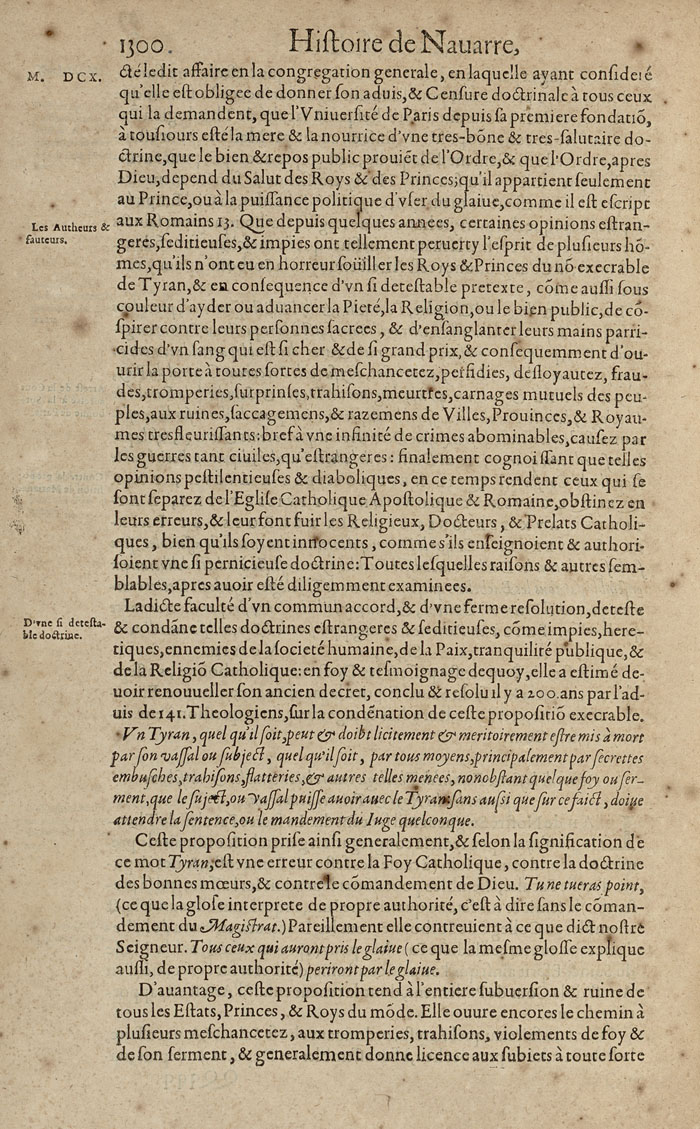 1300. Hiſtoire de Nauarre,
M. DCX.
cté ledit affaire en la congregation generale, en laquelle ayant conſideré
qu'elle eſt obligee de donner ſon aduis, & Cenſure doctrinale à tous ceux
qui la demandent, que l'Vniuerſité de Paris depuis ſa premiere fondatiō,
à touſiours eſté la mere & la nourrice d'vne tres-bōne & tres-ſalutaire do-
ctrine, que le bien & repos public prouiẽt de l'Ordre, & que l'Ordre, apres
Dieu, depend du Salut des Roys & des Princes; qu'il appartient ſeulement
au Prince, ou à la puiſſance politique d'vſer du glaiue, comme il eſt eſcript
Les Autheurs &
fauteurs.
aux Romains 13. Que depuis quelques annees, certaines opinions eſtran-
geres, ſeditieuſes, & impies ont tellement peruerty l'eſprit de pluſieurs hō-
mes, qu'ils n'ont eu en horreur ſoüiller les Roys & Princes du nō execrable
de Tyran, & en conſequence d'vn ſi deteſtable pretexte, cōme auſſi ſous
couleur d'ayder ou aduancer la Pieté, la Religion, ou le bien public, de cō-
ſpirer contre leurs perſonnes ſacrees, & d'enſanglanter leurs mains parri-
cides d'vn ſang qui eſt ſi cher & de ſi grand prix, & conſequemment d'ou-
urir la porte à toutes ſortes de meſchancetez, perfidies, deſloyautez, frau-
des, tromperies, ſurprinſes, trahiſons, meurtres, carnages mutuels des peu-
ples, aux ruines, ſaccagemens, & razemens de Villes, Prouinces, & Royau-
mes tresfleuriſſants: bref à vne infinité de crimes abominables, cauſez par
les guerres tant ciuiles, qu'eſtrangeres: finalement cognoiſſant que telles
opinions peſtilentieuſes & diaboliques, en ce temps rendent ceux qui ſe
ſont ſeparez de l'Egliſe Catholique Apoſtolique & Romaine, obſtinez en
leurs erreurs, & leur font fuir les Religieux, Docteurs, & Prelats Catholi-
ques, bien qu'ils ſoyent innocents, comme s'ils enſeignoient & authori-
ſoient vne ſi pernicieuſe doctrine: Toutes leſquelles raiſons & autres ſem-
blables, apres auoir eſté diligemment examinees.
Ladicte faculté d'vn commun accord, & d'vne ferme reſolution, deteſte
D'vne ſi deteſta-
ble doctrine.
& condāne telles doctrines eſtrangeres & ſeditieuſes, cōme impies, here-
tiques, ennemies de la ſocieté humaine, de la Paix, tranquilité publique, &
de la Religiō Catholique: en foy & teſmoignage dequoy, elle a eſtimé de-
uoir renouueller ſon ancien decret, conclu & reſolu il y a 200. ans par l'ad-
uis de 141. Theologiens, ſur la condēnation de ceſte propoſitiō execrable.
Vn Tyran, quel qu'il ſoit, peut & doibt licitement & meritoirement eſtre mis à mort
par ſon vaſſal ou ſubject, quel qu'il ſoit, par tous moyens, principalement par ſecrettes
embuſches, trahiſons, flatteries, & autres telles menees, nonobſtant quelque foy ou ſer-
ment, que le ſuject, ou vaſſal puiſſe auoir auec le Tyran: ſans auſſi que ſur ce faict, doiue
attendre la ſentence, ou le mandement du Iuge quelconque.
Ceſte propoſition priſe ainſi generalement, & ſelon la ſignification de
ce mot Tyran, eſt vne erreur contre la Foy Catholique, contre la doctrine
des bonnes mœurs, & contre le cōmandement de Dieu. Tu ne tueras point,
(ce que la gloſe interprete de propre authorité, c'eſt à dire ſans le cōman-
dement du Magiſtrat.) Pareillement elle contreuient à ce que dict noſtre
Seigneur. Tous ceux qui auront pris le glaiue (ce que la meſme gloſſe explique
auſſi, de propre authorité) periront par le glaiue.
D'auantage, ceſte propoſition tend à l'entiere ſubuerſion & ruine de
tous les Eſtats, Princes, & Roys du mōde. Elle ouure encores le chemin à
pluſieurs meſchancetez, aux tromperies, trahiſons, violements de foy &
de ſon ſerment, & generalement donne licence aux ſubiets à toute ſorte